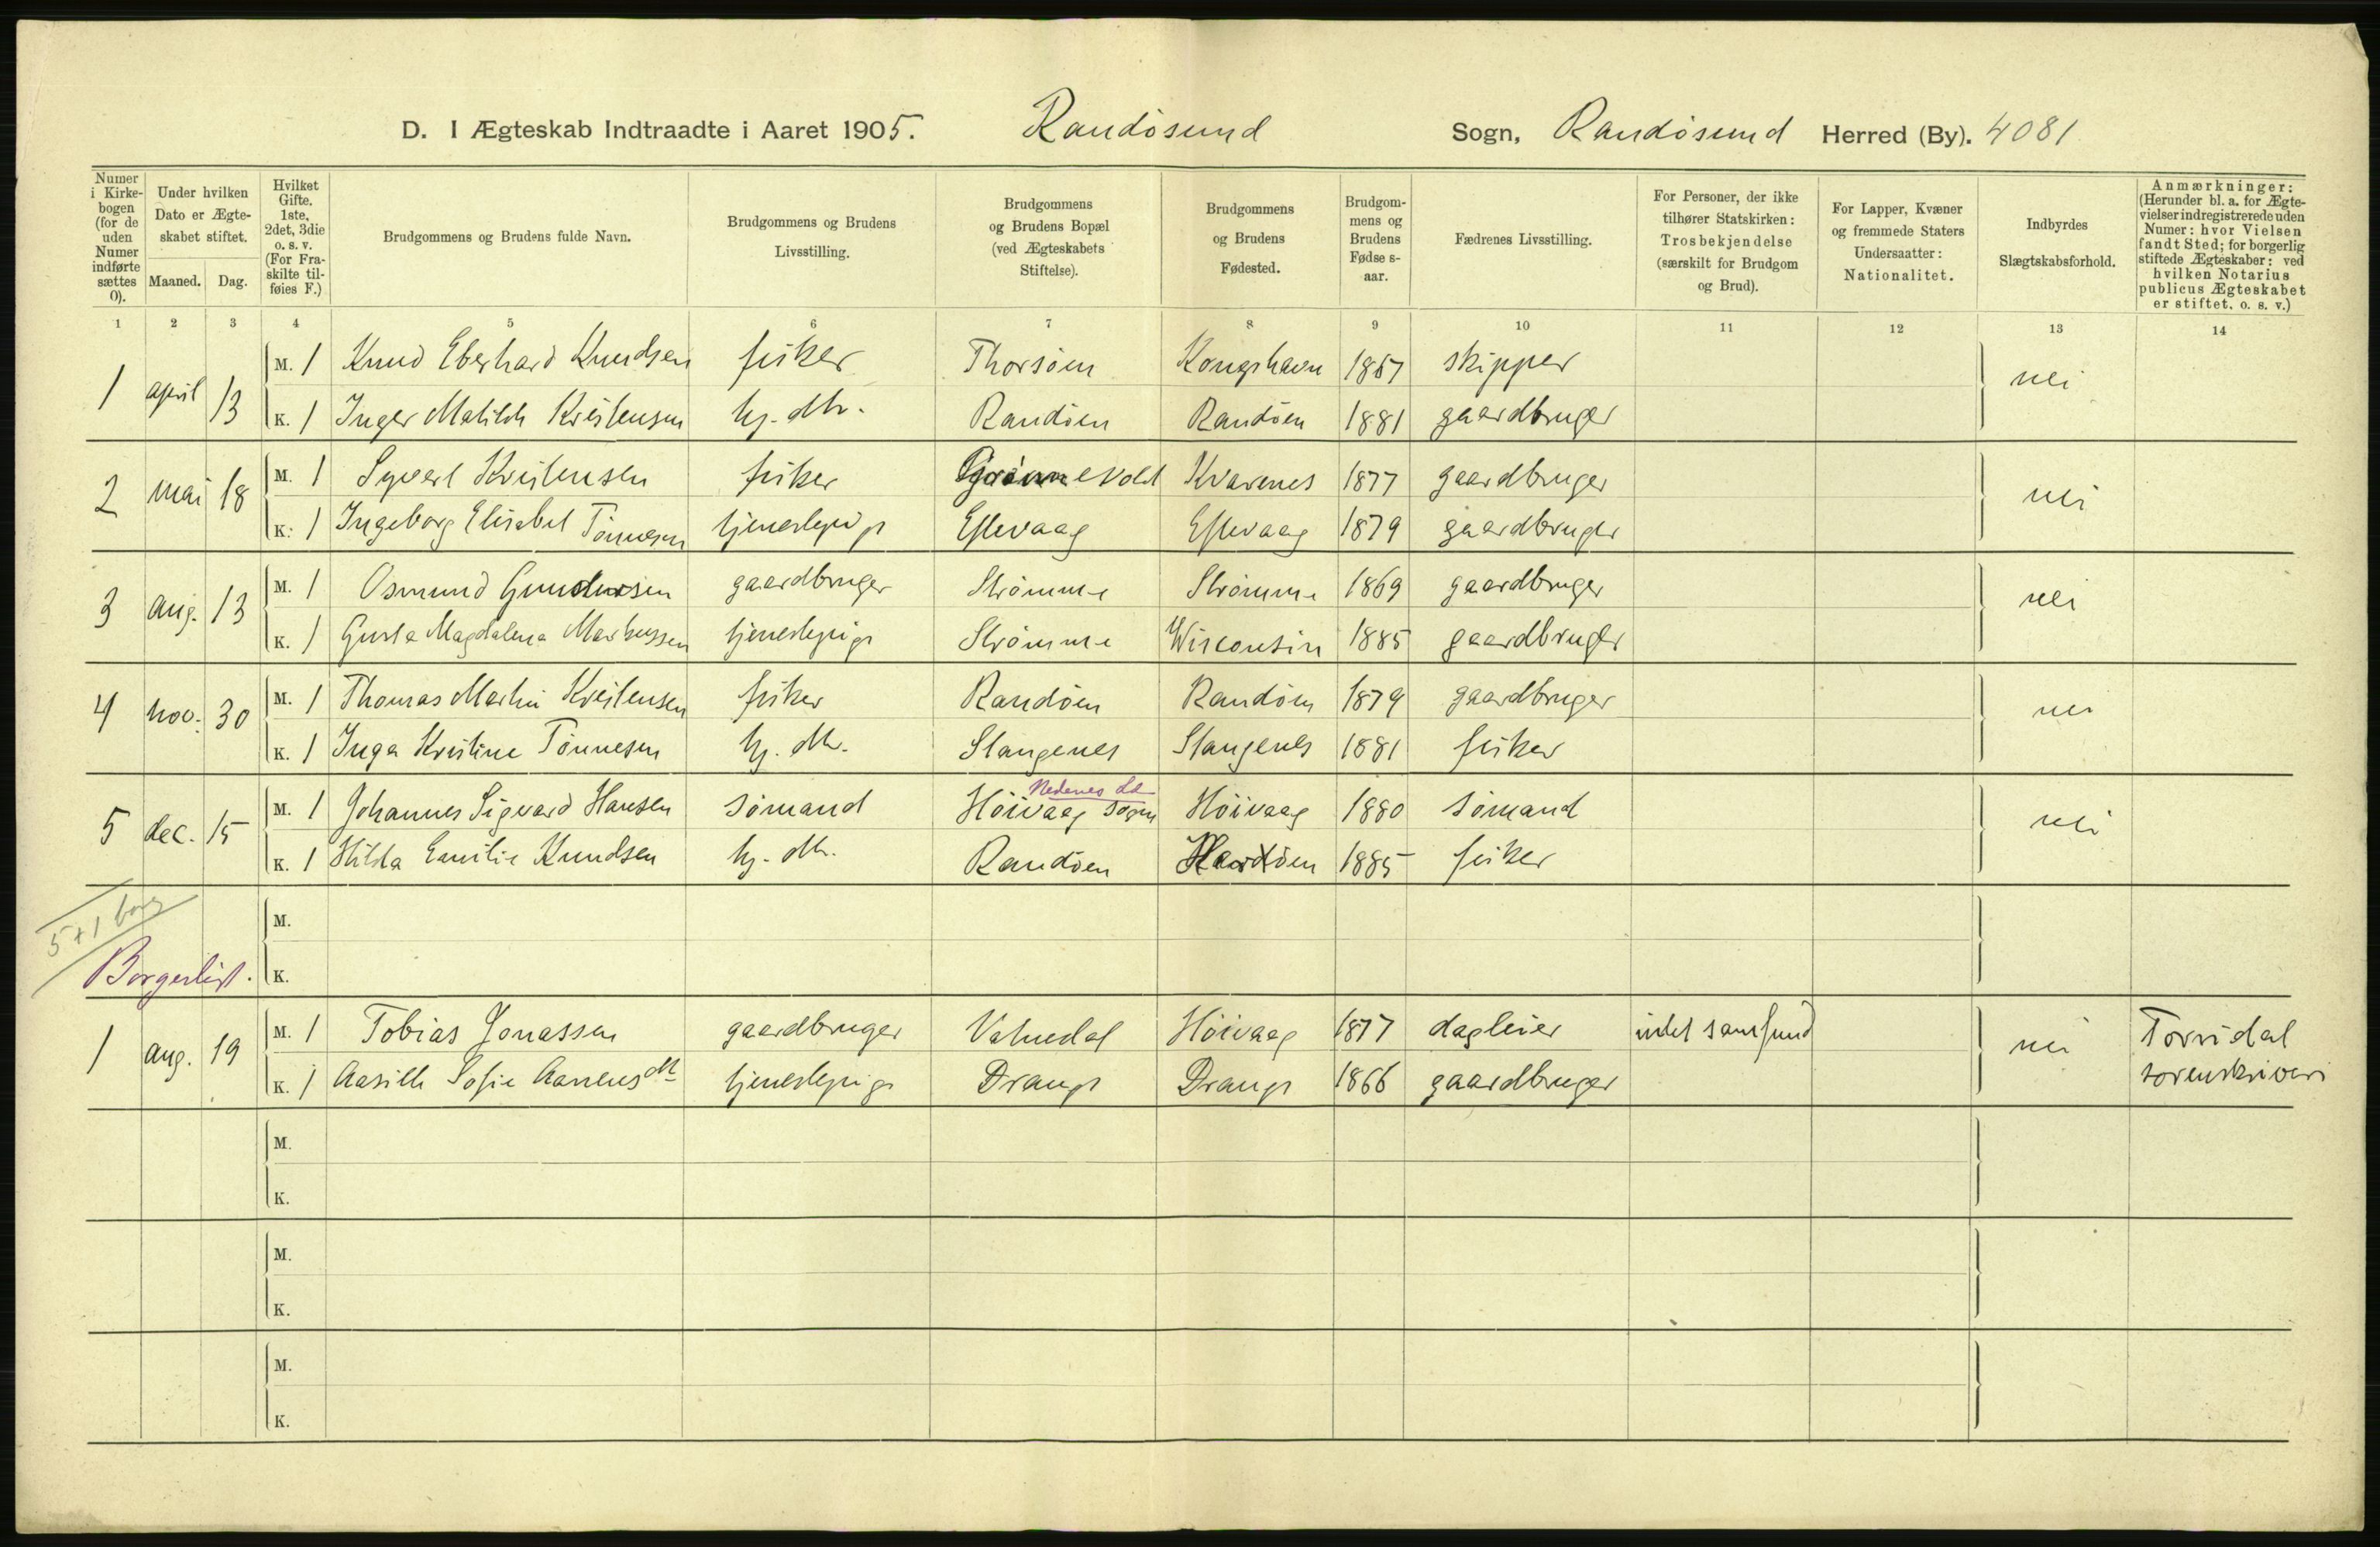 D. I Ægteskab Indtraadte i Aaret 1905. Randøsund Sogn, Randøsund Herred (By). 4081
Numer i Kirkebogen (for de uden Numer indførte sættes 0).
Under hvilken Dato er Ægteskabet stiftet.
Maaned. Dag.
Hvilket Gifte. 1ste, 2det, 3die o. s. v. (For Fraskilte tilføies F.)
Brudgommens og Brudens fulde Navn.
Brudgommens og Brudens Livsstilling.
Brudgommens og Brudens Bopæl (ved Ægteskabets Stiftelse).
Brudgommens og Brudens Fødested.
Brudgommens og Brudens Fødse s-aar.
Fædrenes Livsstilling.
For Personer, der ikke tilhører Statskirken: Trosbekjendelse (særskilt for Brudgom og Brud).
For Lapper, Kvæner og fremmede Staters Undersaatter: Nationalitet.
Indbyrdes Slægtskabsforhold.
Anmærkninger: (Herunder bl. a. for Ægtevielser indregistrerede uden Numer: hvor Vielsen fandt Sted; for borgerlig stiftede Ægteskaber: ved hvilken Notarius publicus Ægteskabet er stiftet. o. s. v.)
1 2 3 4 5 6 7 8 9 10 11 12 13 14
1 april 13 M. 1 Knud Eberhard Knudsen fisker Thorsøen Kongshavn 1867 skipper nei
K. 1 Inger Matilde Kristensen hj. dtr. Randøen Randøen 1881 gaardbruger
2 mai 18 M. 1 Syvert Kristensen fisker Kvarenes 1877 gaardbruger nei
K. 1 Ingeborg Elisabet Tønnesen tjenestepige Eftevaag Eftevaag 1879 gaardbruger
3 aug. 13 M. 1 Osmund Gundersen gaardbruger Strømme Strømme 1869 gaardbruger nei
K. 1 Gusta Magdalena Markussen tjenestepige Strømme Wisconsin 1885 gaardbruger
4 nov. 30 M. 1 Thomas Martin Kristensen fisker Randøen Randøen 1879 gaardbruger nei
K. 1 Inga Kristine Tønnesen hj. dtr. Stangenes Stangenes 1881 fisker
Nedenes
5 dec. 15 M. 1 Johannes Sigvard Hansen sømand Høivaag sogn Høivaag 1880 sømand nei
K. 1 Hilda Emilie Knudsen hj. dtr. Randøen 1885 fisker
5 + 1 borg
M.
Borgerligt. K.
1 aug. 19 M. 1 Tobias Jonassen gaardbruger Valnedal Høivaag 1877 dagleier intet samfund nei Torridal
K. 1 Aasille Sofie Aanensdt tjenestepige Drange Drange 1866 gaardbruger sorenskriveri
M.
K.
M.
K.
M.
K.